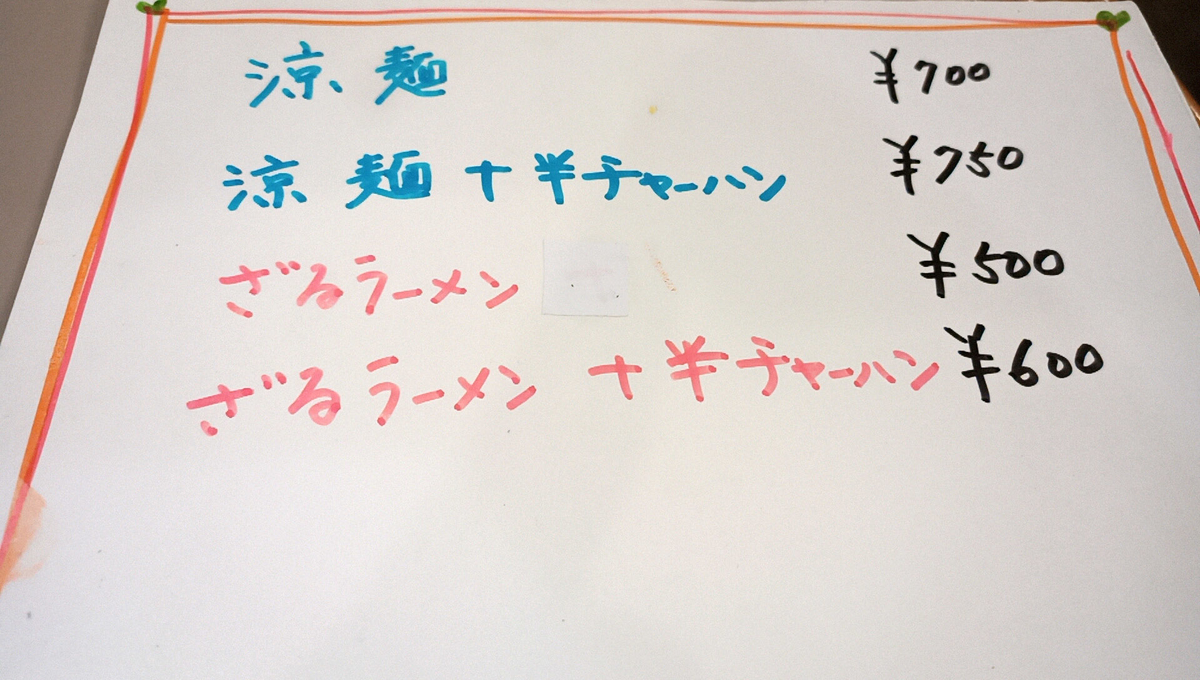 涼麺 ¥700
涼麺+半チャーハン ¥750
ざるラーメン ¥500
ざるラーメン+半チャーハン ¥600